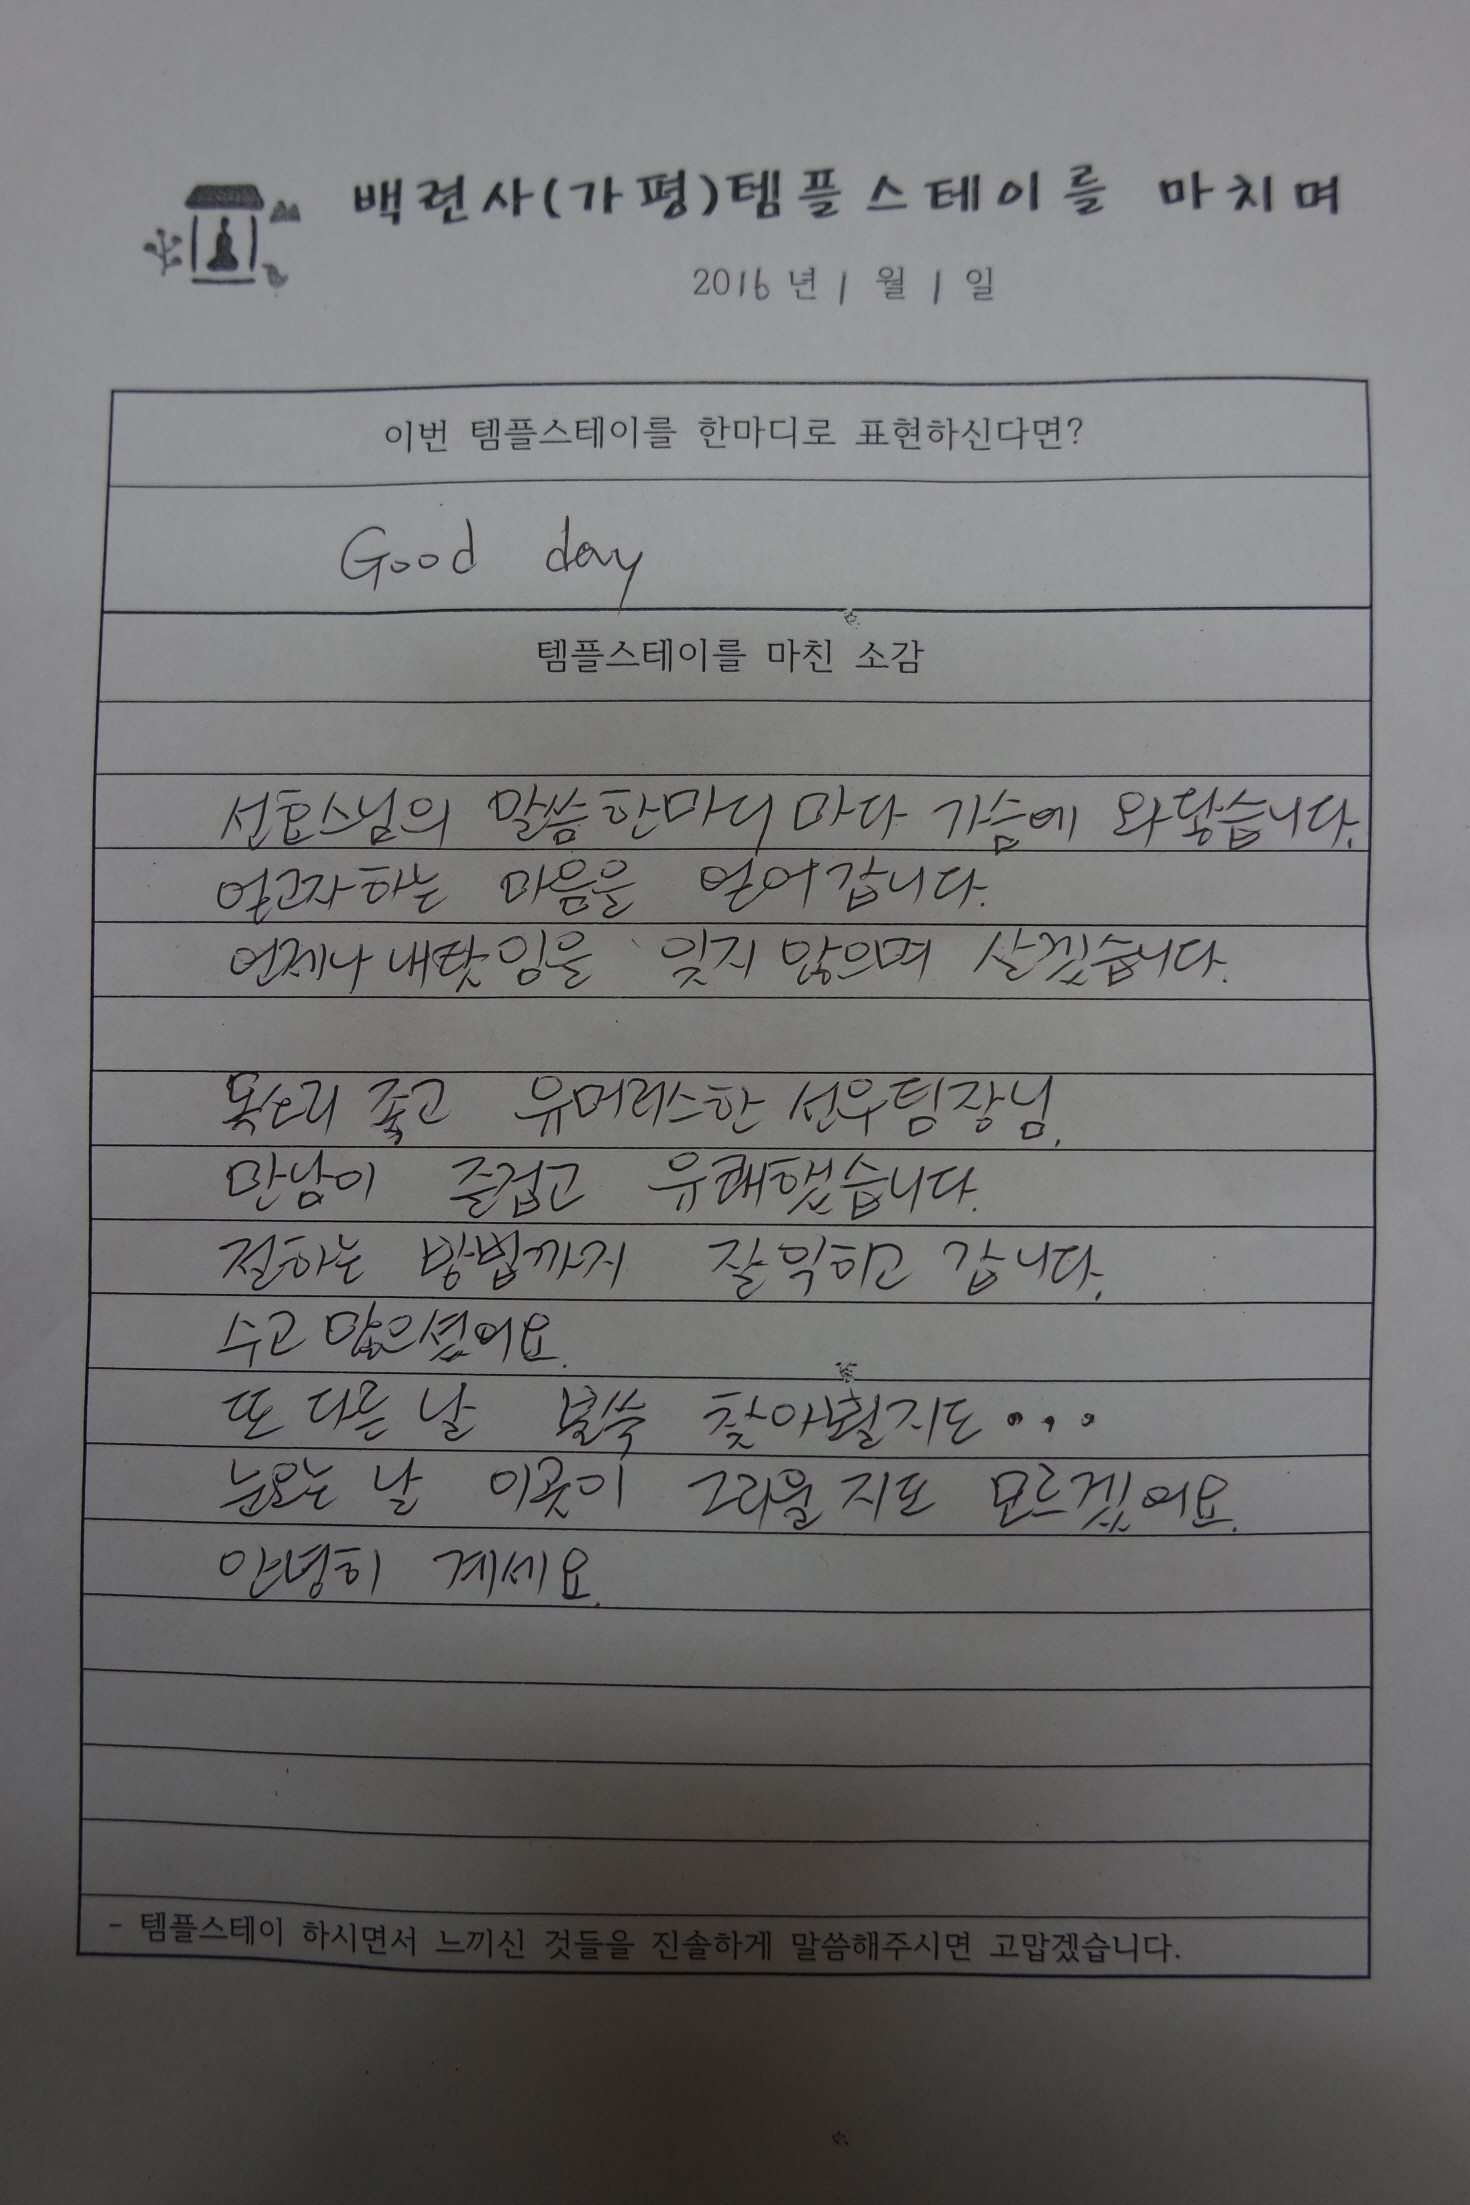 백련사(가평)템플스테이를 마치며
2016년 1월 1일
이번 템플스테이를 한마디로 표현하신다면?
Good day
템플스테이를 마친 소감
선효스님의 말씀 한마디 마다 가슴에 와닿습니다.
얻고자하는 마음을 얻어 갑니다.
언제나 내탓임을 잊지 않으며 살겠습니다.
목소리 좋고 유머러스한 선우팀장님.
만남이 즐겁고 유쾌했습니다.
절하는 방법까지 잘 익히고 갑니다.
수고 많으셨어요.
또 다른 날 불쑥 찾아뵐지도...
눈오는 날 이곳이 그리울 지도 모르겠어요.
안녕히 계세요.
- 템플스테이 하시면서 느끼신 것들을 진솔하게 말씀해주시면 고맙겠습니다.